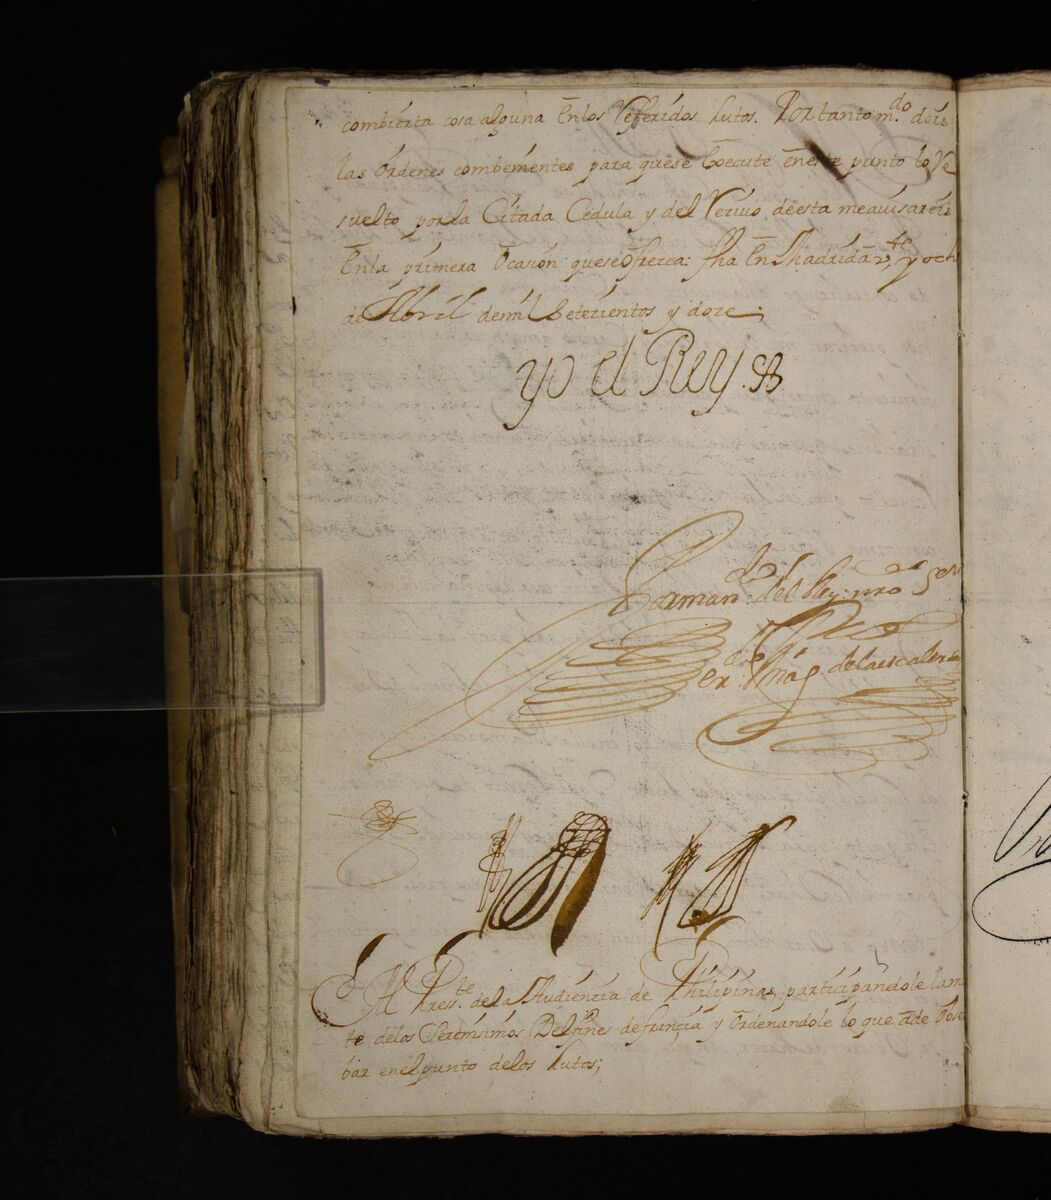 combierta cosa alguna En los Referidos lutos. Por tanto m.do deis
las Ordenes combenientes para que se Execute en este punto lo Re
suelto por la Citada Cedula y del Recivo de esta me avisareis
En la primera Ocasion que se Ofrezca: fha En Madrid a v.te y och
de Abril de mil Setezientos y doze
yo el Rey
Por man.do del Rey nro Señ
de la escalera
Al Press.te de la Audienzia de Philipinas, participandole la mu
te de los Serenisimos Delfines de franzia y Ordenandole lo que a de Obse
bar en el punto de los lutos;